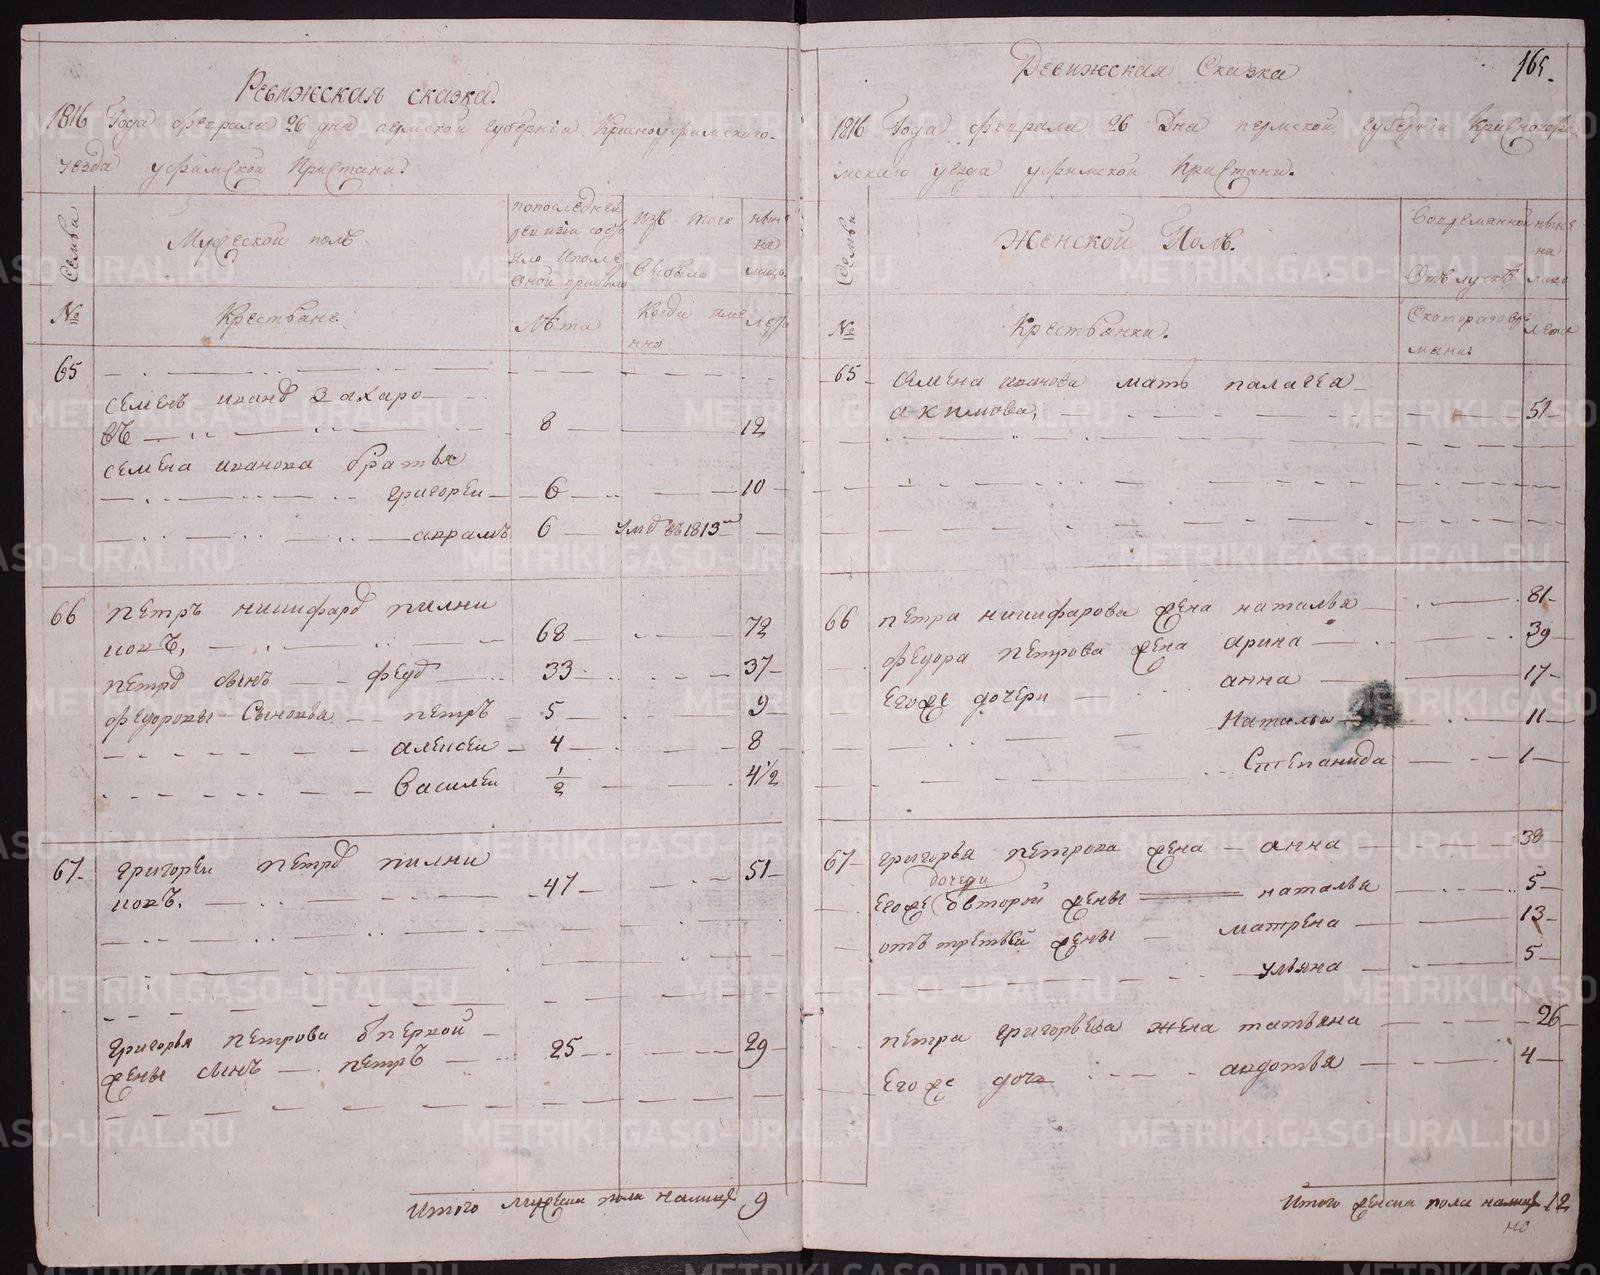 Ревижская сказка.
1816 Года февраля 26 дня пермской губернiи Красноуфимскаго
уезда уфимской Пристани.
Семьи
Мужеской полъ
попоследней
ревизiи состо
яло
Изъ того
выбыло
ныне
на
лицо
№
Крестьяне
Лѣта
Когда име
нно
лета
65
семенъ иванд захаро
въ 8 12
семена иванова братья
григореи 6 10
авраамъ 6 умд въ 1813
66 петръ никифард пилни
ковъ, 68 72
петрд сынъ федд 33 37
федоровы Сыновья петръ 5 9
алексеи 4 8
Василеи 1/2 4 1/2
67 григореи петрд пилни
ковъ. 47 51
григорья петрова б первой
жены сынъ петръ 25 29
Итого мужеска пола налице 9
165.
Ревижская Сказка
1816 Года февраля 26 Дня пермской губернiи Красноуфи
мскаго уезда уфимской Пристани.
Семьи
Женской Полъ.
Отълучкѣ
ныне
на
лицо
№
Крестьянки.
Скотораговре
мяни
лета
65 семена иванова мать палагея
акимова, 51
66 петра никифарова жена наталья 81
федора петрова жена арина 39
Егоже дочери анна 17
Наталья 11
Степанида 1
67 григорья петрова жена анна 38
дочери
Егоже б второй жены наталья 5
отъ третьей жены матрена 13
ульяна 5
петра григорьева жена татьяна 26
Егоже дочь авдотья 4
Итого женска пола налице 12
но
METRIKI.GASO-URAL.RU